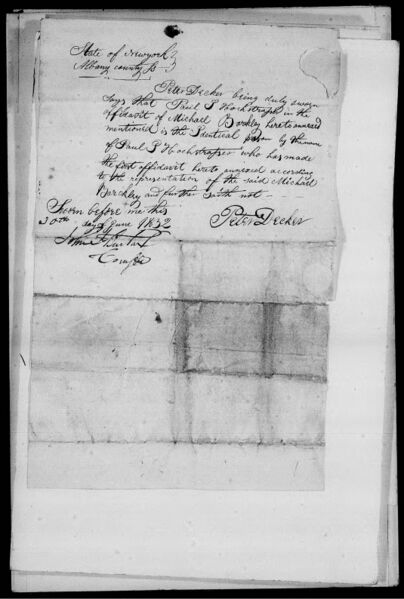 State of Newyork
Albany county Ss
Peter Decker being duly sworn
says that Paul S Hochstrasser in the
affidavit of Michael Barkley hereto annexed
mentioned is the Identical person by the name
of Paul S Hochstrasser who has made
the first affidavit hereto annexed according
to the representation of the said Michael
Barckley and further saith not
Sworn before me this
30th day of June 1832
Peter Decker
Comr